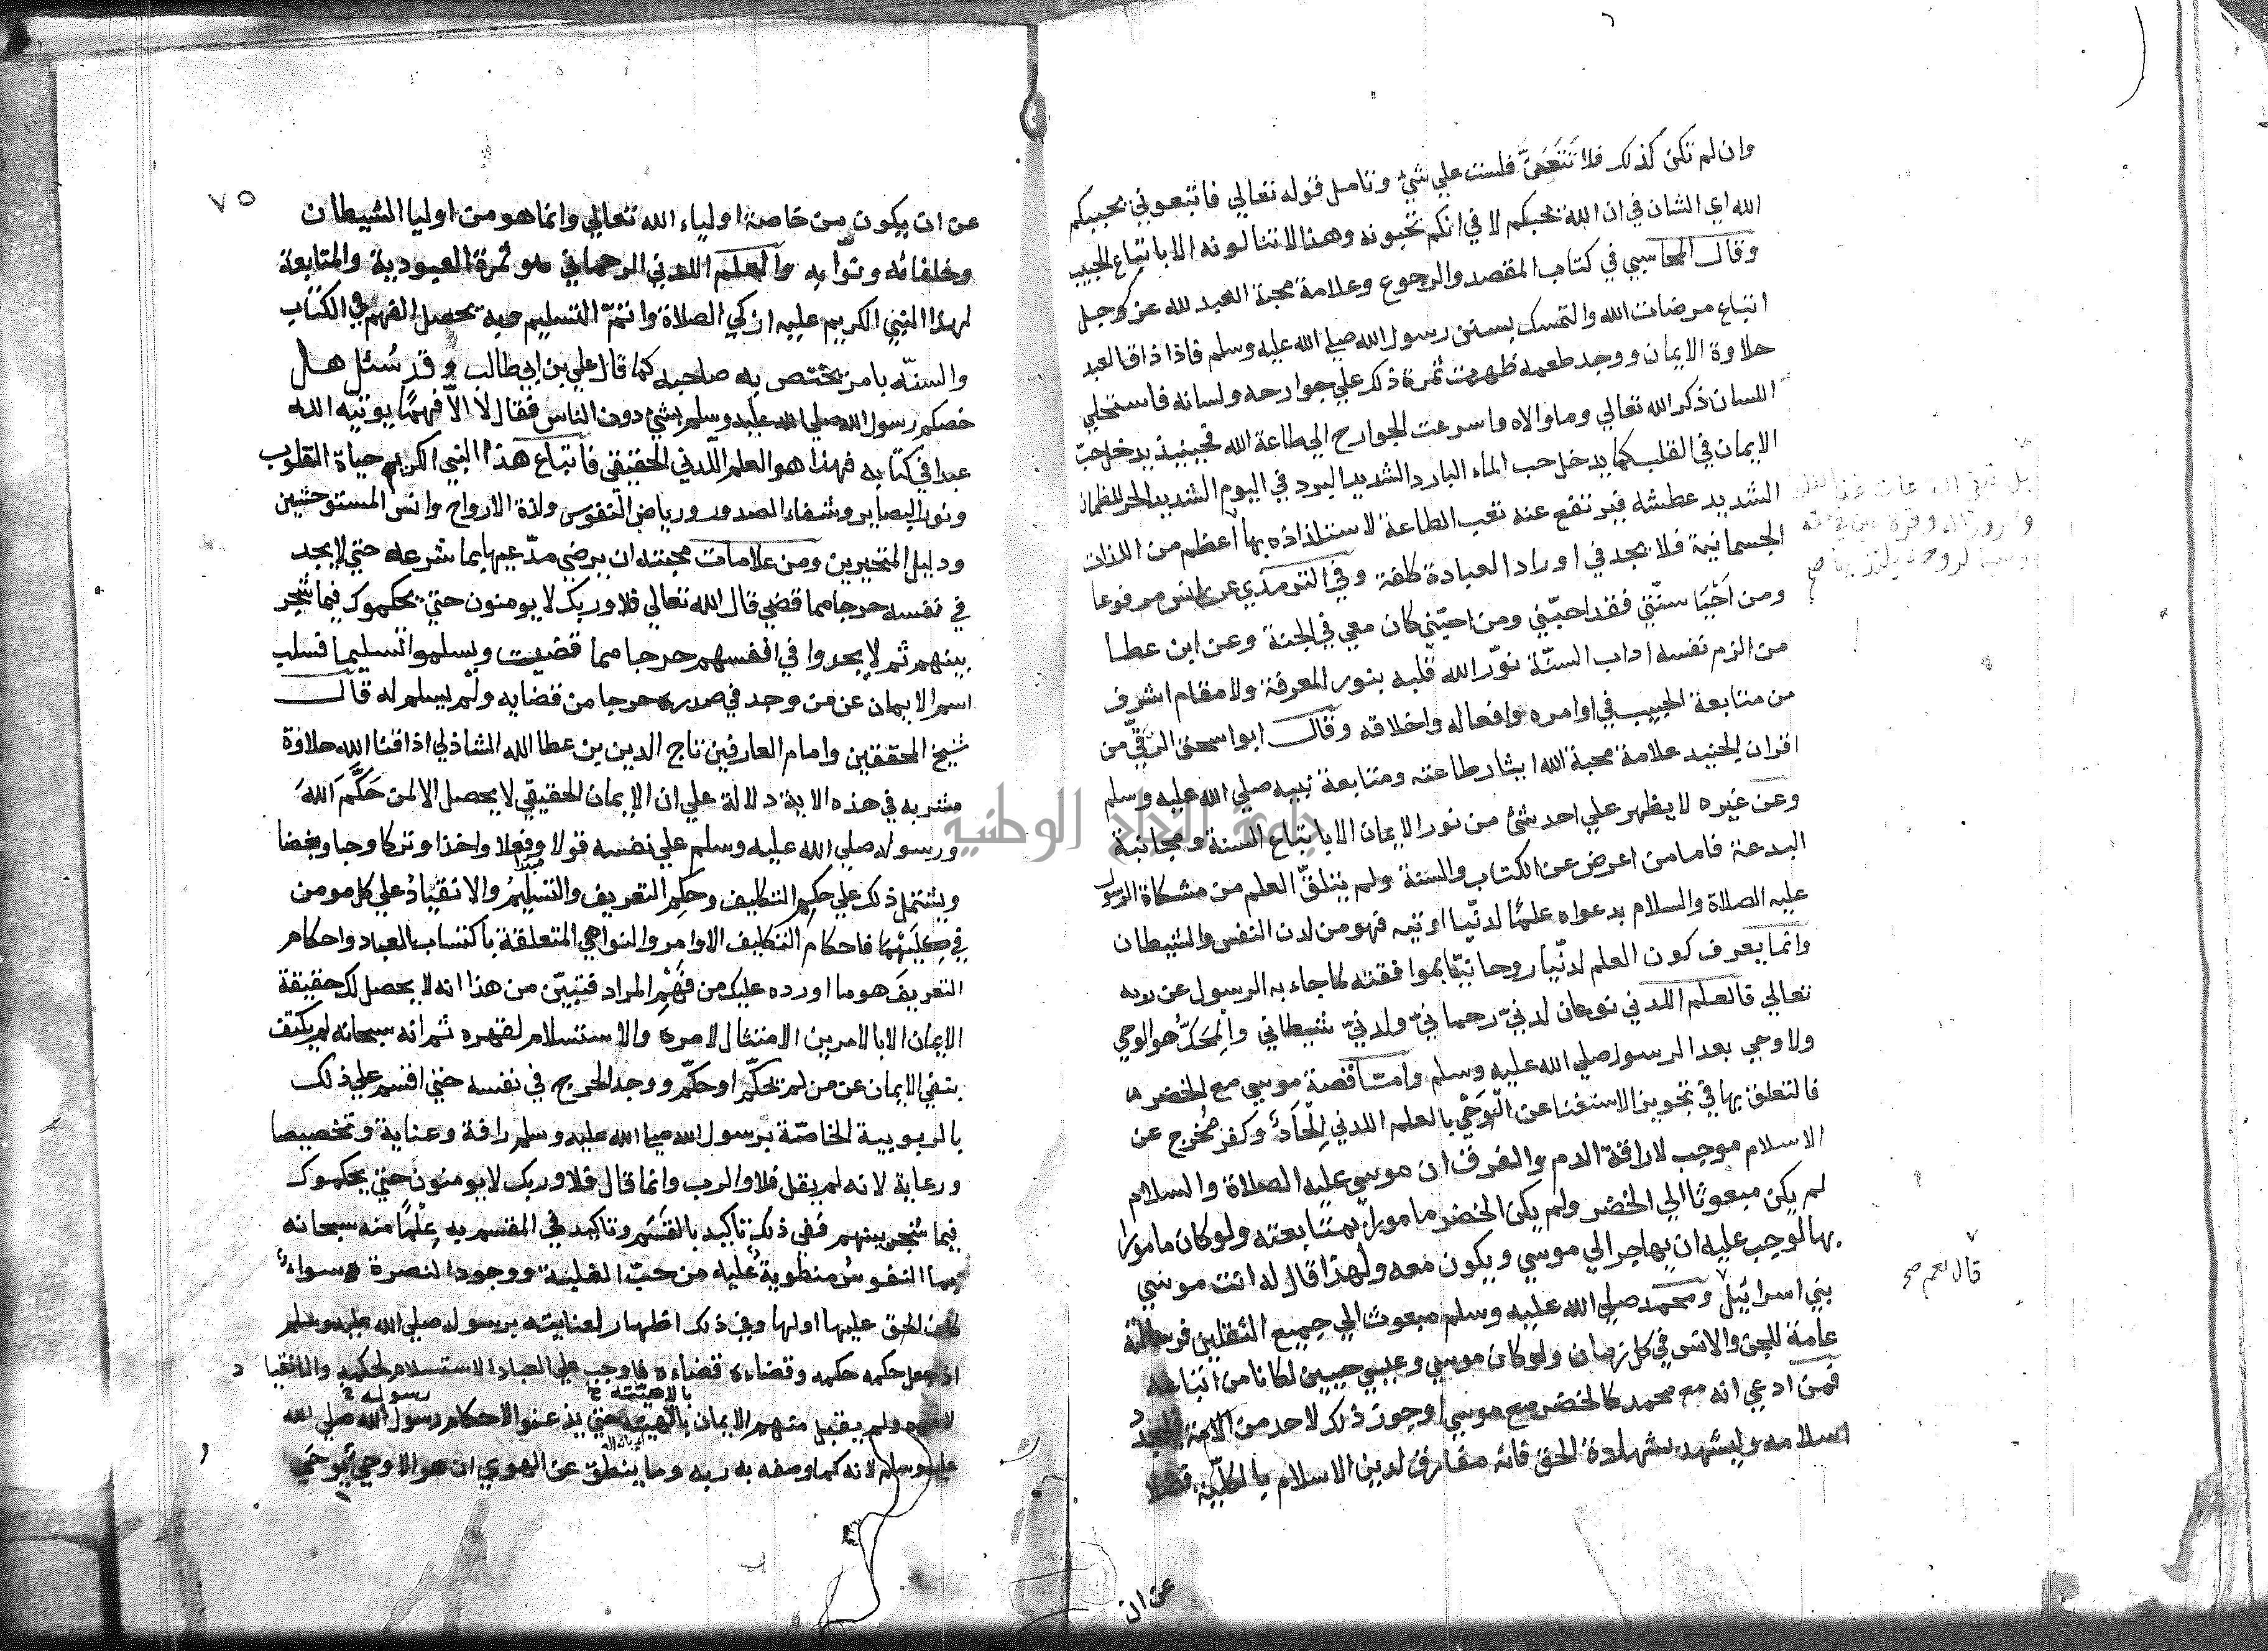 وان لم تكن كذلك فلا تتعنّ فلست علي شئ وتامل قوله تعالي فاتبعوني يحببكم
الله اي الشان في ان الله يحبكم لا في انكم تحبونه وهذا لا تنالونه الا باتباع الحبيب
وقال المحاسبي في كتاب المقصد والرجوع وعلامة محبة العبد لله عز وجل
اتباع مرضات الله والتمسك بسنن رسول الله صلي الله عليه وسلم فاذا ذاق العبد
حلاوة الايمان ووجد طعمه ظهرت ثمرة ذلك علي جوارحه ولسانه فاستحلي
اللسان ذكر الله تعالي وما والاه واسرعت الجوارح الي طاعة الله فحينيذ يدخل حبّ
الايمان في القلب كما يدخل حب الماء البارد الشديد البرد في اليوم الشديد الحر للظمان
الشديد عطشه فيرتفع عنه تعب الطاعة لاستلذاذه بها أعظم من اللذات
الجسمانية فلا يجد في اوراد العبادة كلفة وفي الترمذي عن انس مرفوعا
ومن أحْيَا سنّتي فقد احبّني ومن احبّني كان معي في الجنة وعن ابن عطا
من الزم نفسه اداب السنّة نوّر الله قلبه بنور المعرفة ولا مقام اشرف
من متابعة الحبيب في اوامره وافعاله واخلاقه وقال ابو اسحق الرقّي من
اقران الجنيد علامة محبة الله ايثار طاعته ومتابعة نبيه صلي الله عليه وسلم
وعن غيره لا يظهر علي احد شئ من نور الايمان الا باتباع السنة ومجانبة
البدعة فاما من اعرض عن الكتاب والسنة ولم يتلقّ العلم من مشكاة الرسول
عليه الصلاة والسلام بدعواه علمًا لدنّيا اوتيه فهو من لدن النفس والشيطان
وانما يعرف كون العلم لدنّيا روحانيّا بموافقته لما جاء به الرسول عن ربه
تعالي فالعلم اللدني نوعان لدنيّ رحمانيّ ولدنيّ شيطاني والمَحَكّ هو الوحي
ولا وحي بعد الرسول صلي الله عليه وسلم وامّا قصة موسي مع الخضر
فالتعلق بها في تجويز الاستغنا عن الْوَحْي بالعلم اللدني إلْحَادٌ وكفر مُخْرج عن
الاسلام موجب لاراقة الدم والفرق ان موسي عليه الصلاة والسلام
لم يكن مبعوثا الي الخضر ولم يكن الخضر مامورا بمتابعته ولو كان مامورا
بها لوجب عليه ان يهاجر الي موسي ويكون معه ولهذا قال له انت موسي
بني اسرائيل ومحمد صلي الله عليه وسلم مبعوث الي جميع الثقلين فرسالته
قال نعم صح
عامة للجن والانس في كل زمان ولو كان موسي وعيسي حيين لكانا من اتباعه
فمن ادعي انه مع محمد كالخضر مع موسي او جوز ذلك لاحد من الامة فليجدد
اسلامه وليشهد بشهادة الحق فانه مفارق لدين الاسلام بالكلّية فضلا
عن ان
٧٥
عن ان يكون من خاصة اولياء الله تعالي وانما هو من اوليا الشيطان
وخلفائه ونوّابه والعلم اللدني الرحماني هو ثمرة العبودية والمتابعة
لهذا النبي الكريم عليه ازكي الصلاة واتمّ التسليم وبه يحصل الفهم في الكتاب
والسنّه بامر يختص به صاحبه كما قال علي بن ابي طالب وقد سُئل هل
خصكم رسول الله صلي الله عليه وسلم بشئ دون الناس فقال لا الّا فهمًا يوتيه الله
عبدا في كتابه فهذا هو العلم اللّدني الحقيقي فاتباع هذا النبي الكريم حياة القلوب
ونور البصاير وشفاء الصدور ورياض النفوس ولذة الارواح وانس المستوحشين
ودليل المتحيرين ومن علامات محبته ان يرضي مدّعيها بما شرعه حتي لا يجد
في نفسه حرجا مما قضي قال الله تعالي فلا وربك لا يومنون حتي يحكموك فيما شجر
بينهم ثم لا يجدوا في انفسهم حرجا مما قضيت ويسلموا تسليما فسلب
اسم الايمان عن من وجد في صدره حرجا من قضايه ولم يسلم له قال
شيخ المحققين وامام العارفين تاج الدين بن عطا الله الشاذلي اذاقنا الله حلاوة
مشربه في هذه الاية دلالة علي ان الايمان الحقيقي لا يحصل الا لمن حَكَّمَ اللهَ
ورسوله صلي الله عليه وسلم علي نفسه قولا وفعلا واخذا وتركا وحبا وبغضا
ويشتمل ذلك علي حكم التكليف وحكم التعريف والتسليم والانقياد علي كل مومن
في كليهما فاحكام التكليف الاوامر والنواهي المتعلقة باكتساب العباد واحكام
التعريف هو ما اورده عليك من فَهْمِ المراد فتبيّن من هذا انه لا يحصل لك حقيقة
الايمان الا بالامرين الامتثال لامره والاستسلام لقهره ثم انه سبحانه لم يكتف
بنفي الايمان عن من لم يحكّم او حكّم ووجد الحرج في نفسه حتي اقسم علي ذلك
بالربوبية الخاصّة برسول الله صلي الله عليه وسلم رافة وعناية وتخصيصا
ورعاية لانه لم يقل فلا والرب وانما قال فلا وربك لا يومنون حتي يحكموك
فيما شجر بينهم ففي ذلك تاكيد بالقسم وتاكيد في المقسم به عِلْمًا منه سبحانه
بما النفوسُ منطويةٌ عليه من حبّ الغلبة ووجود النصرة سواءٌ
كان الحق عليها او لها وفي ذلك اظهار لعنايته برسوله صلي الله عليه وسلم
اذ جعل حكمه حكمه وقضاءه قضاءه فاوجب علي العباد الاستسلام لحكمه والانقياد
ولم يقبل منهم الايمان بالهيته حتي يذعنوا لاحكام رسول الله صلي الله
عليه وسلم لانه كما وصفه به ربه وما ينطق عن الهوي ان هو الا وحي يُوحَي